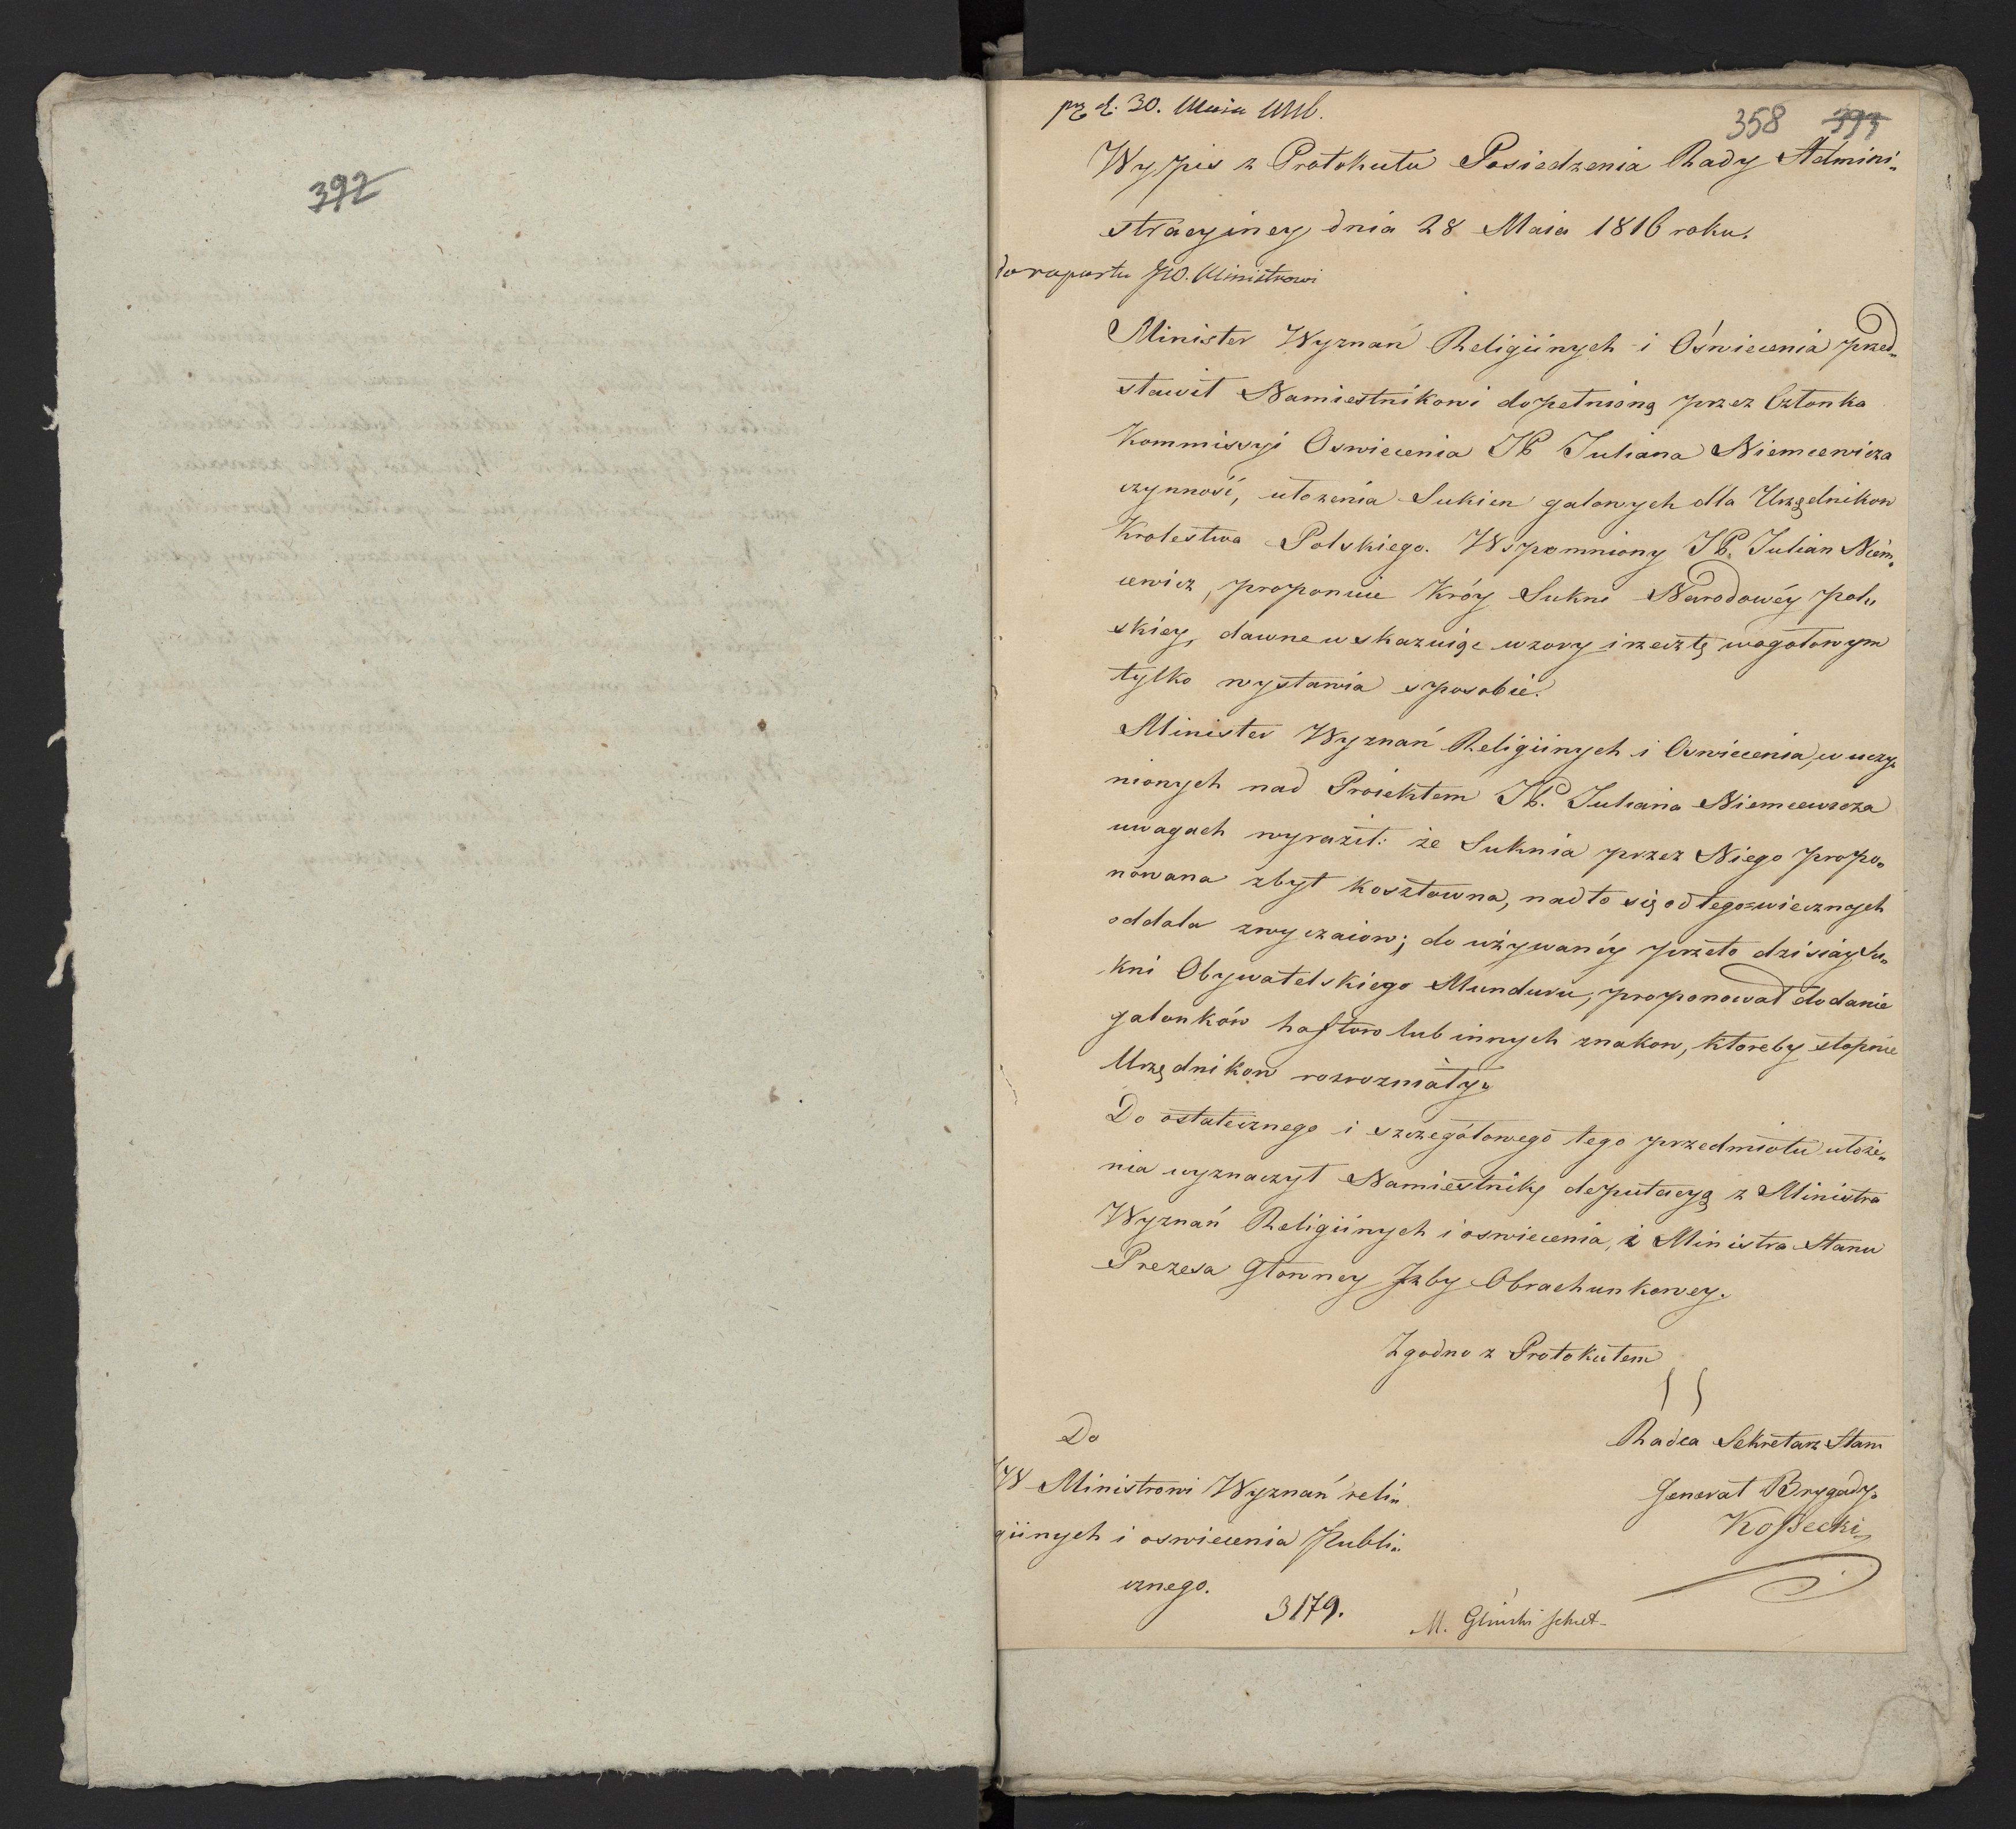 392
prz d. 30. Maia 1816.
358 393
Wypis z Protokułu Posiedzenia Rady Admini„
stracyiney dnia 28 Maia 1816 roku.
do raportu JW. Ministrowi
Minister Wyznań Religiinych i Oświecenia przed„
stawił Namiestnikowi dopełnioną przez Członka
Kommissyi Oswiecenia JP Juliana Niemcewicza
czynność, ułozenia Sukien galowych dla Urzędnikow
Krolestwa Polskiego. Wspomniony JP. Julian Niem„
cewicz, proponuie Króy Sukni Narodowéy pol„
skiey, dawne wskazuiąc wzory i rzecz tę w ogołowym
tylko wystawia sposobie.
Minister Wyznań Religiinych i Oswiecenia, w uczy„
nionych nad Proiektem JP. Juliana Niemcewicza
uwagach wyraził: że Suknia przez Niego propo„
nowana zbyt kosztowna, nadto się od tegowiecznych
oddala zwyczaiow; do używanéy przeto dzisiay Su„
kni Obywatelskiego Munduru, proponował dodanie
galonków haftow lub innych znakow, ktoreby stopnie
Urzędnikow rozrozniały.
Do ostatecznego i szczegółowego tego przedmiotu ułoże„
nia wyznaczył Namiestnik deputacyą z Ministra
Wyznań Religiinych i oswiecenia, i Ministra Stanu
Prezesa Głowney Izby Obrachunkowey.
Zgodno z Protokułem
Radca Sekretarz Stanu
Generał Brygady
Kossecki
Do
JW Ministrowi Wyznań reli„
giinych i oswiecenia Publi„
cznego.
3179.
M. Gliński sekret